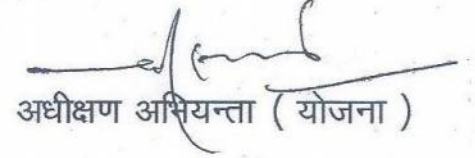 अधीक्षण अभियन्ता ( योजना )